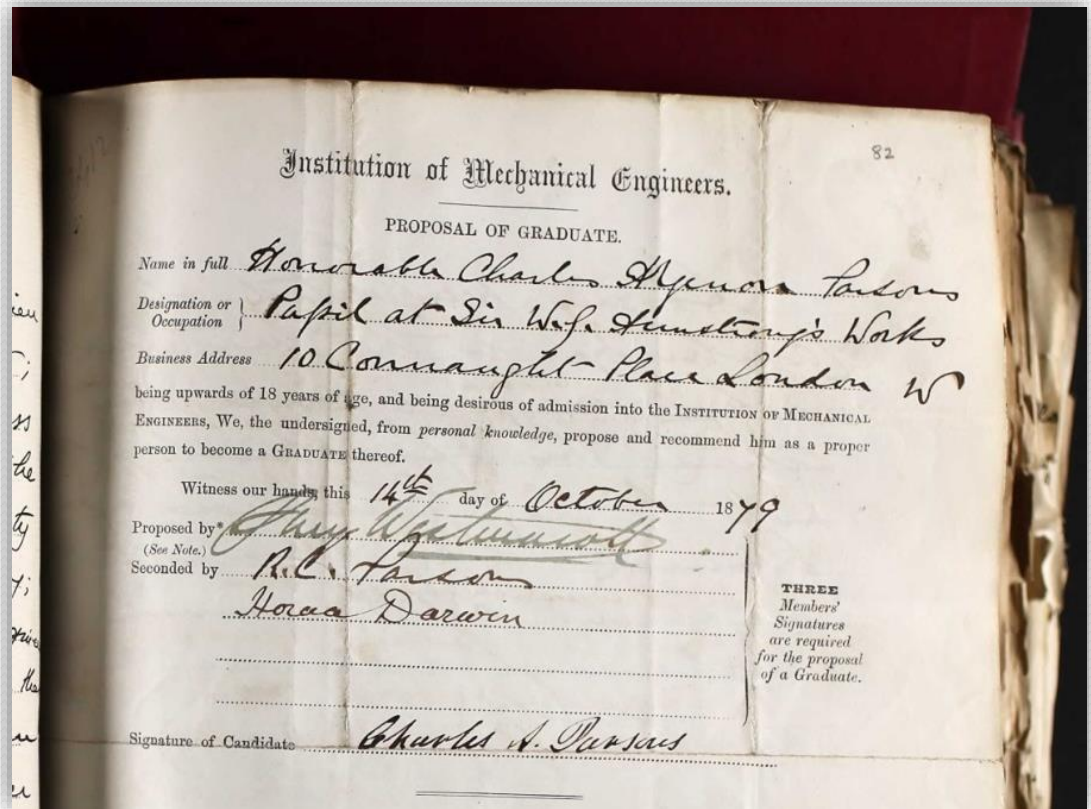 82
Institution of Mechanical Engineers.
PROPOSAL OF GRADUATE.
Name in full Honorable Charles Algernon Parsons
Designation or Occupation } Pupil at Sir W.G. Armstrong's Works
Business Address 10 Connaught Place London W
being upwards of 18 years of age, and being desirous of admission into the INSTITUTION OF MECHANICAL
ENGINEERS, We, the undersigned, from personal knowledge, propose and recommend him as a proper
person to become a GRADUATE thereof.
Witness our hands, this 14th day of October 1879
Proposed by* Percy Westmacott
(See Note.)
Seconded by R.C. Parsons
Horace Darwin
THREE
Members'
Signatures
are required
for the proposal
of a Graduate.
Signature of Candidate Charles A. Parsons